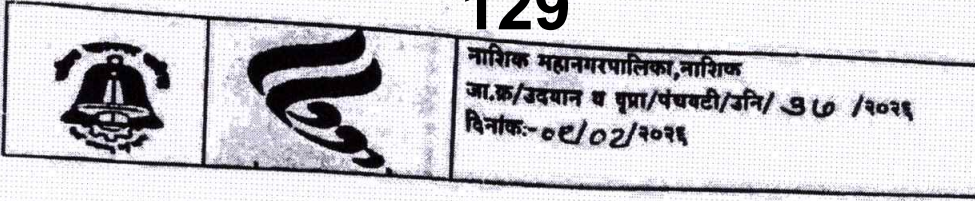 129
नाशिक महानगरपालिका,नाशिक
जा.क्र/उदयान व वृप्रा/पंचवटी/उनि/ ३७ /२०२६
दिनांक:-०९/०२/२०२६